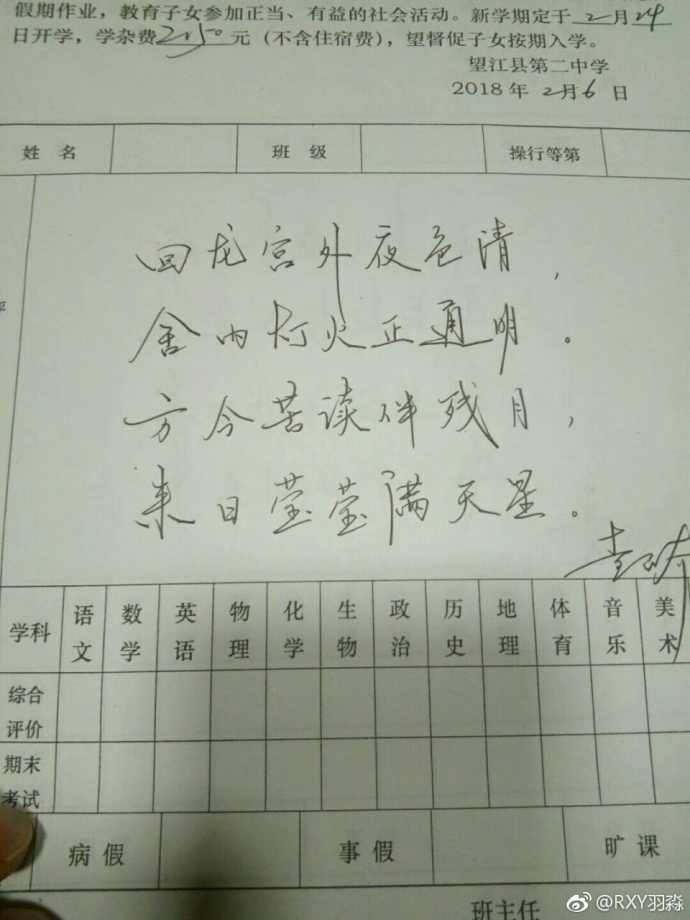 假期作业，教育子女参加正当、有益的社会活动。新学期定于2月24
日开学，学杂费2150元（不含住宿费），望督促子女按期入学。
望江县第二中学
2018年2月6日
姓名 班级 操行等第
回龙宫外夜色清，
舍内灯火正通明。
方今苦读伴残月，
来日莹莹满天星。
学科 语文 数学 英语 物理 化学 生物 政治 历史 地理 体育 音乐 美术
综合评价
期末考试
病假 事假 旷课
班主任
@RXY羽淼